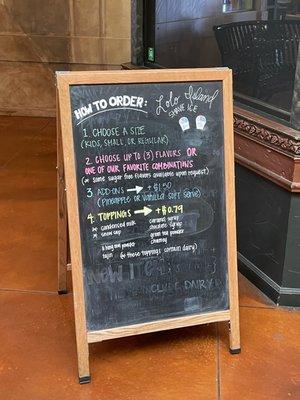 HOW TO ORDER:
Lolo Island
SHAVE ICE
1. CHOOSE A SIZE
(KIDS, SMALL, OR REGULAR)
2. CHOOSE UP TO (3) FLAVORS OR
ONE OF OUR FAVORITE COMBINATIONS
(** some sugar free flavors available upon request)
3. ADD-ONS → +$1.50
(Pineapple or Vanilla Soft Serve)
4. TOPPINGS → +$0.79
** condensed milk
** snow cap
li hing mui powder
tajin
caramel syrup
chocolate syrup
green tea powder
chamoy
(** these toppings contain dairy)
NOW IT'S
INCLUDE DAIRY